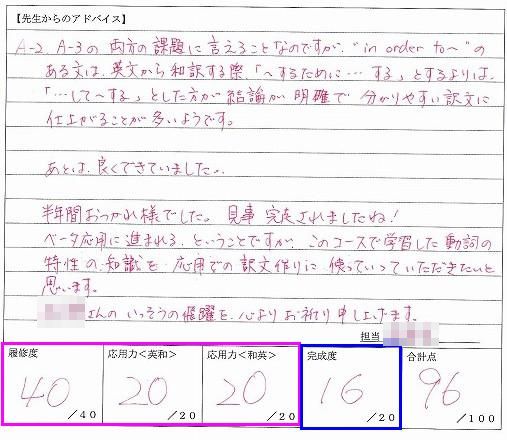 【先生からのアドバイス】
A-2, A-3の両方の課題に言えることなのですが、"in order to~"の
ある文は、英文から和訳する際、「~するために…する」とするよりは、
「…して~する」とした方が結論が明確で分かりやすい訳文に
仕上がることが多いようです。
あとは、良くできていました。
半年間おつかれ様でした。見事完走されましたね!
ベータ応用に進まれる、ということですが、このコースで学習した動詞の
特性の知識を、応用での訳文作りに使っていっていただきたいと
思います。
さんのいっそうの飛躍を、心よりお祈り申し上げます。
担当
履修度 応用力<英和> 応用力<和英> 完成度 合計点
40 20 20 16 96
/40 /20 /20 /20 /100